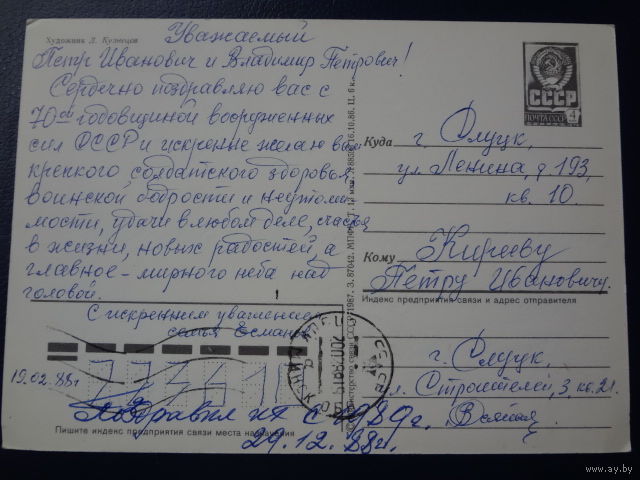 Художник Л. Кузнецов
Уважаемый
Петр Иванович и Владимир Петрович!
Сердечно поздравляю вас с
70ой годовщиной вооруженных
сил СССР и искренне желаю вам
крепкого солдатского здоровья,
воинской бодрости и неутоми-
мости, удачи в любом деле, счастья
в жизни, новых радостей, а
главное - мирного неба над
головой.
С искренним уважением
семья
19.02.88г
Поздравил их с 1989г.
29.12.88г.
Пишите индекс предприятия связи места назначения
СССР
ПОЧТА СССР
4
Куда г. Слуцк,
ул Ленина, д 193,
кв. 10.
Кому Кирееву
Петру Ивановичу.
Индекс предприятия связи и адрес отправителя
г. Слуцк,
ул. Строителей, 3 кв. 21.
www.ay.by